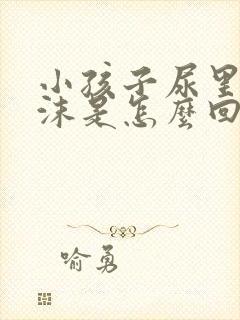 小孩子尿里
沫是怎麼回
喻勇